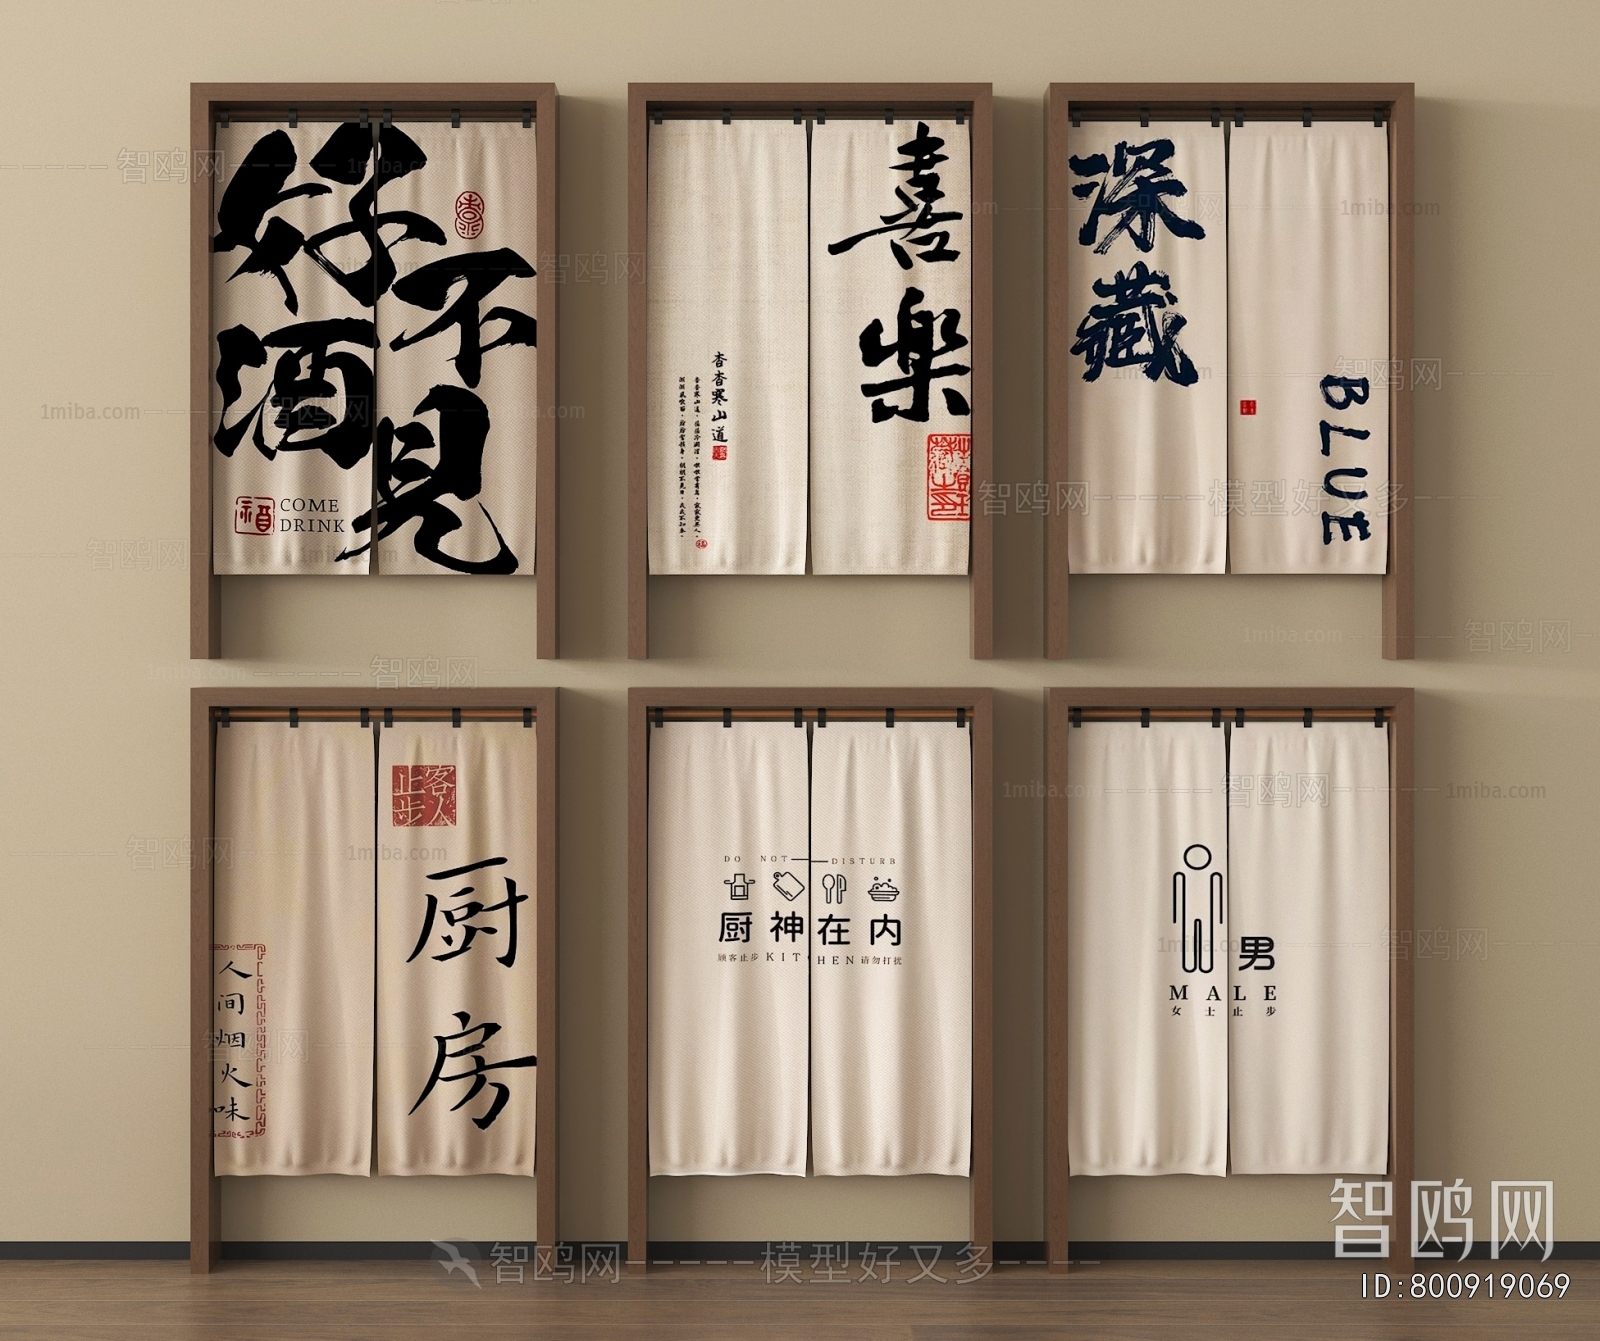 好酒
不見
COME
DRINK
喜樂
杳杳寒山道
深藏
BLUE
客人止步
厨房
人间烟火味
DO NOT DISTURB
厨神在内
顾客止步 KITCHEN 请勿打扰
男
MALE
女士止步
智鸥网
ID:800919069
智鸥网-----模型好又多----
1miba.com